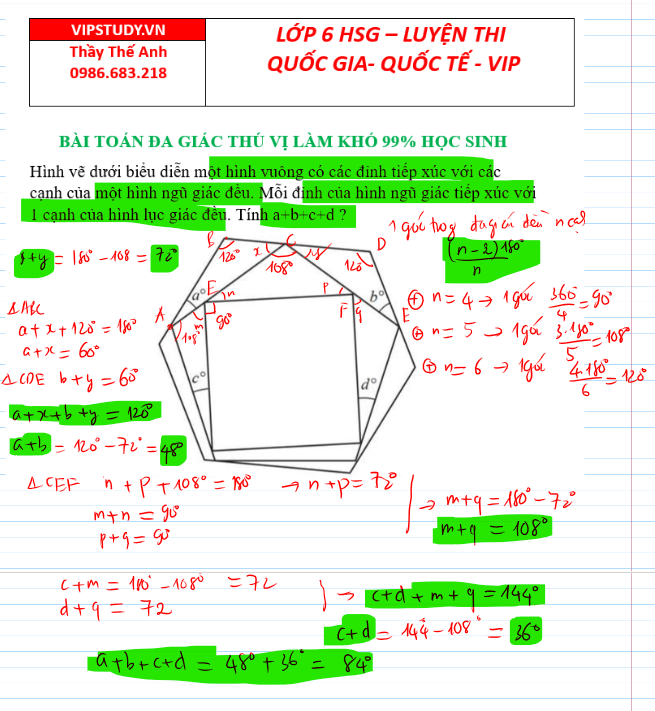 VIPSTUDY.VN
Thầy Thế Anh
0986.683.218
LỚP 6 HSG – LUYỆN THI
QUỐC GIA- QUỐC TẾ - VIP
BÀI TOÁN ĐA GIÁC THÚ VỊ LÀM KHÓ 99% HỌC SINH
Hình vẽ dưới biểu diễn một hình vuông có các đỉnh tiếp xúc với các
cạnh của một hình ngũ giác đều. Mỗi đỉnh của hình ngũ giác tiếp xúc với
1 cạnh của hình lục giác đều. Tính a+b+c+d ?
1 góc trong đa giác đều n cạnh
(n-2)180°
n
x+y = 180° - 108 = 72°
⊕ n = 4 → 1 góc 360°/4 = 90°
⊕ n = 5 → 1 góc 3.180°/5 = 108°
⊕ n = 6 → 1 góc 4.180°/6 = 120°
B
C
D
120°
x
y
108°
120°
a°
E
n
P
b°
A
m
90°
F
q
E
108°
c°
d°
Δ ABC
a + x + 120° = 180°
a + x = 60°
Δ CDE b + y = 60°
a + x + b + y = 120°
a + b = 120° - 72° = 48°
Δ CEF n + p + 108° = 180° → n + p = 72°
m + n = 90°
p + q = 90°
→ m + q = 180° - 72°
m + q = 108°
c + m = 180° - 108° = 72
d + q = 72
→ c + d + m + q = 144°
c + d = 144° - 108° = 36°
a + b + c + d = 48° + 36° = 84°